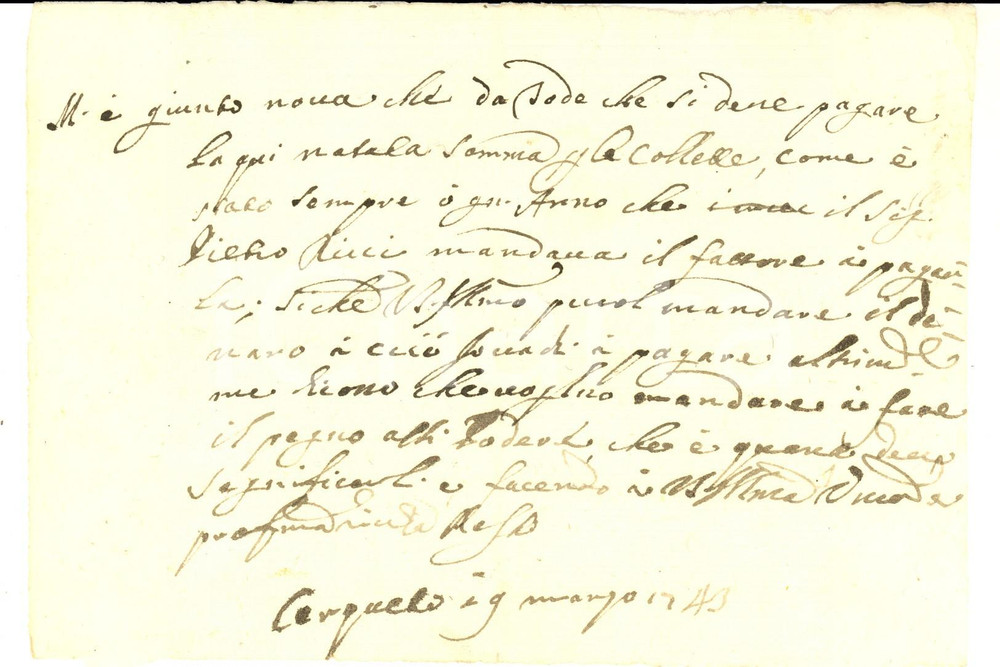 M. è giunto nova che da Tode che si deve pagare
la qui natata somma p le Collette, come è
stato sempre ógni Anno che il Sig.
Pietro Ricci mandava il fattore à pagar
la; siche V.S. Illmo puol mandare il de
naro à ciò à pagare altrim.
me dicono che voglino mandare à fare
il pegno alli Poderi, che è quanto devo
significarl. e facendo à V.S. Illma
profonda Resto
Cerqueto i 9 marzo 1743